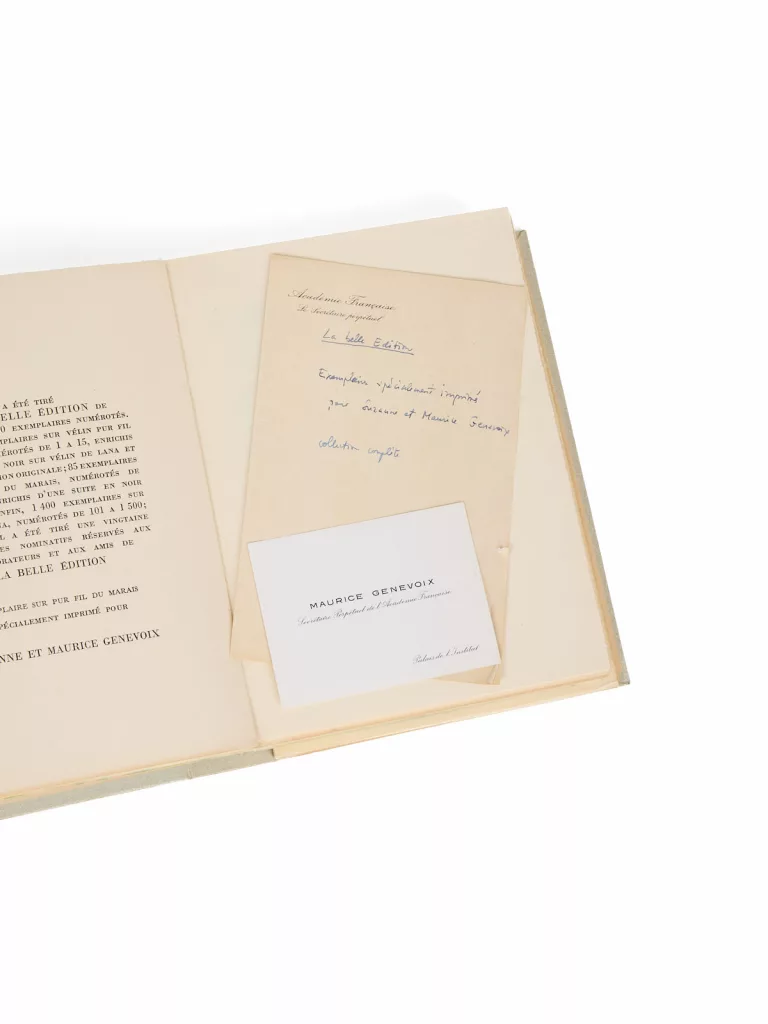 A ÉTÉ TIRÉ
ELLE ÉDITION DE
0 EXEMPLAIRES NUMÉROTÉS.
MPLAIRES SUR VÉLIN PUR FIL
MÉROTÉS DE 1 A 15, ENRICHIS
NOIR SUR VÉLIN DE LANA ET
ION ORIGINALE; 85 EXEMPLAIRES
DU MARAIS, NUMÉROTÉS DE
NRICHIS D'UNE SUITE EN NOIR
NFIN, 1 400 EXEMPLAIRES SUR
NA, NUMÉROTÉS DE 101 A 1 500;
L A ÉTÉ TIRÉ UNE VINGTAINE
ES NOMINATIFS RÉSERVÉS AUX
ORATEURS ET AUX AMIS DE
LA BELLE ÉDITION
MPLAIRE SUR PUR FIL DU MARAIS
PÉCIALEMENT IMPRIMÉ POUR
NNE ET MAURICE GENEVOIX
Académie Française
Le Secrétaire perpétuel
La belle Edition
Exemplaires spécialement imprimé
pour Suzanne et Maurice Genevoix
collection complète
MAURICE GENEVOIX
Secrétaire Perpétuel de l'Académie Française
Palais de l'Institut